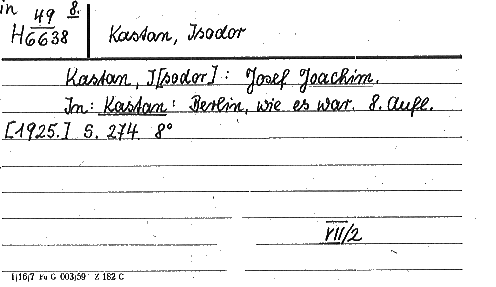 in 49 8.
H6638 Kastan, Isodor
Kastan, I[sodor]: Josef Joachim.
In: Kastan: Berlin, wie es war. 8. Aufl.
[1925.] S. 274 8°
VII/2
1/16/7 Fu G 003/59 Z 162 C